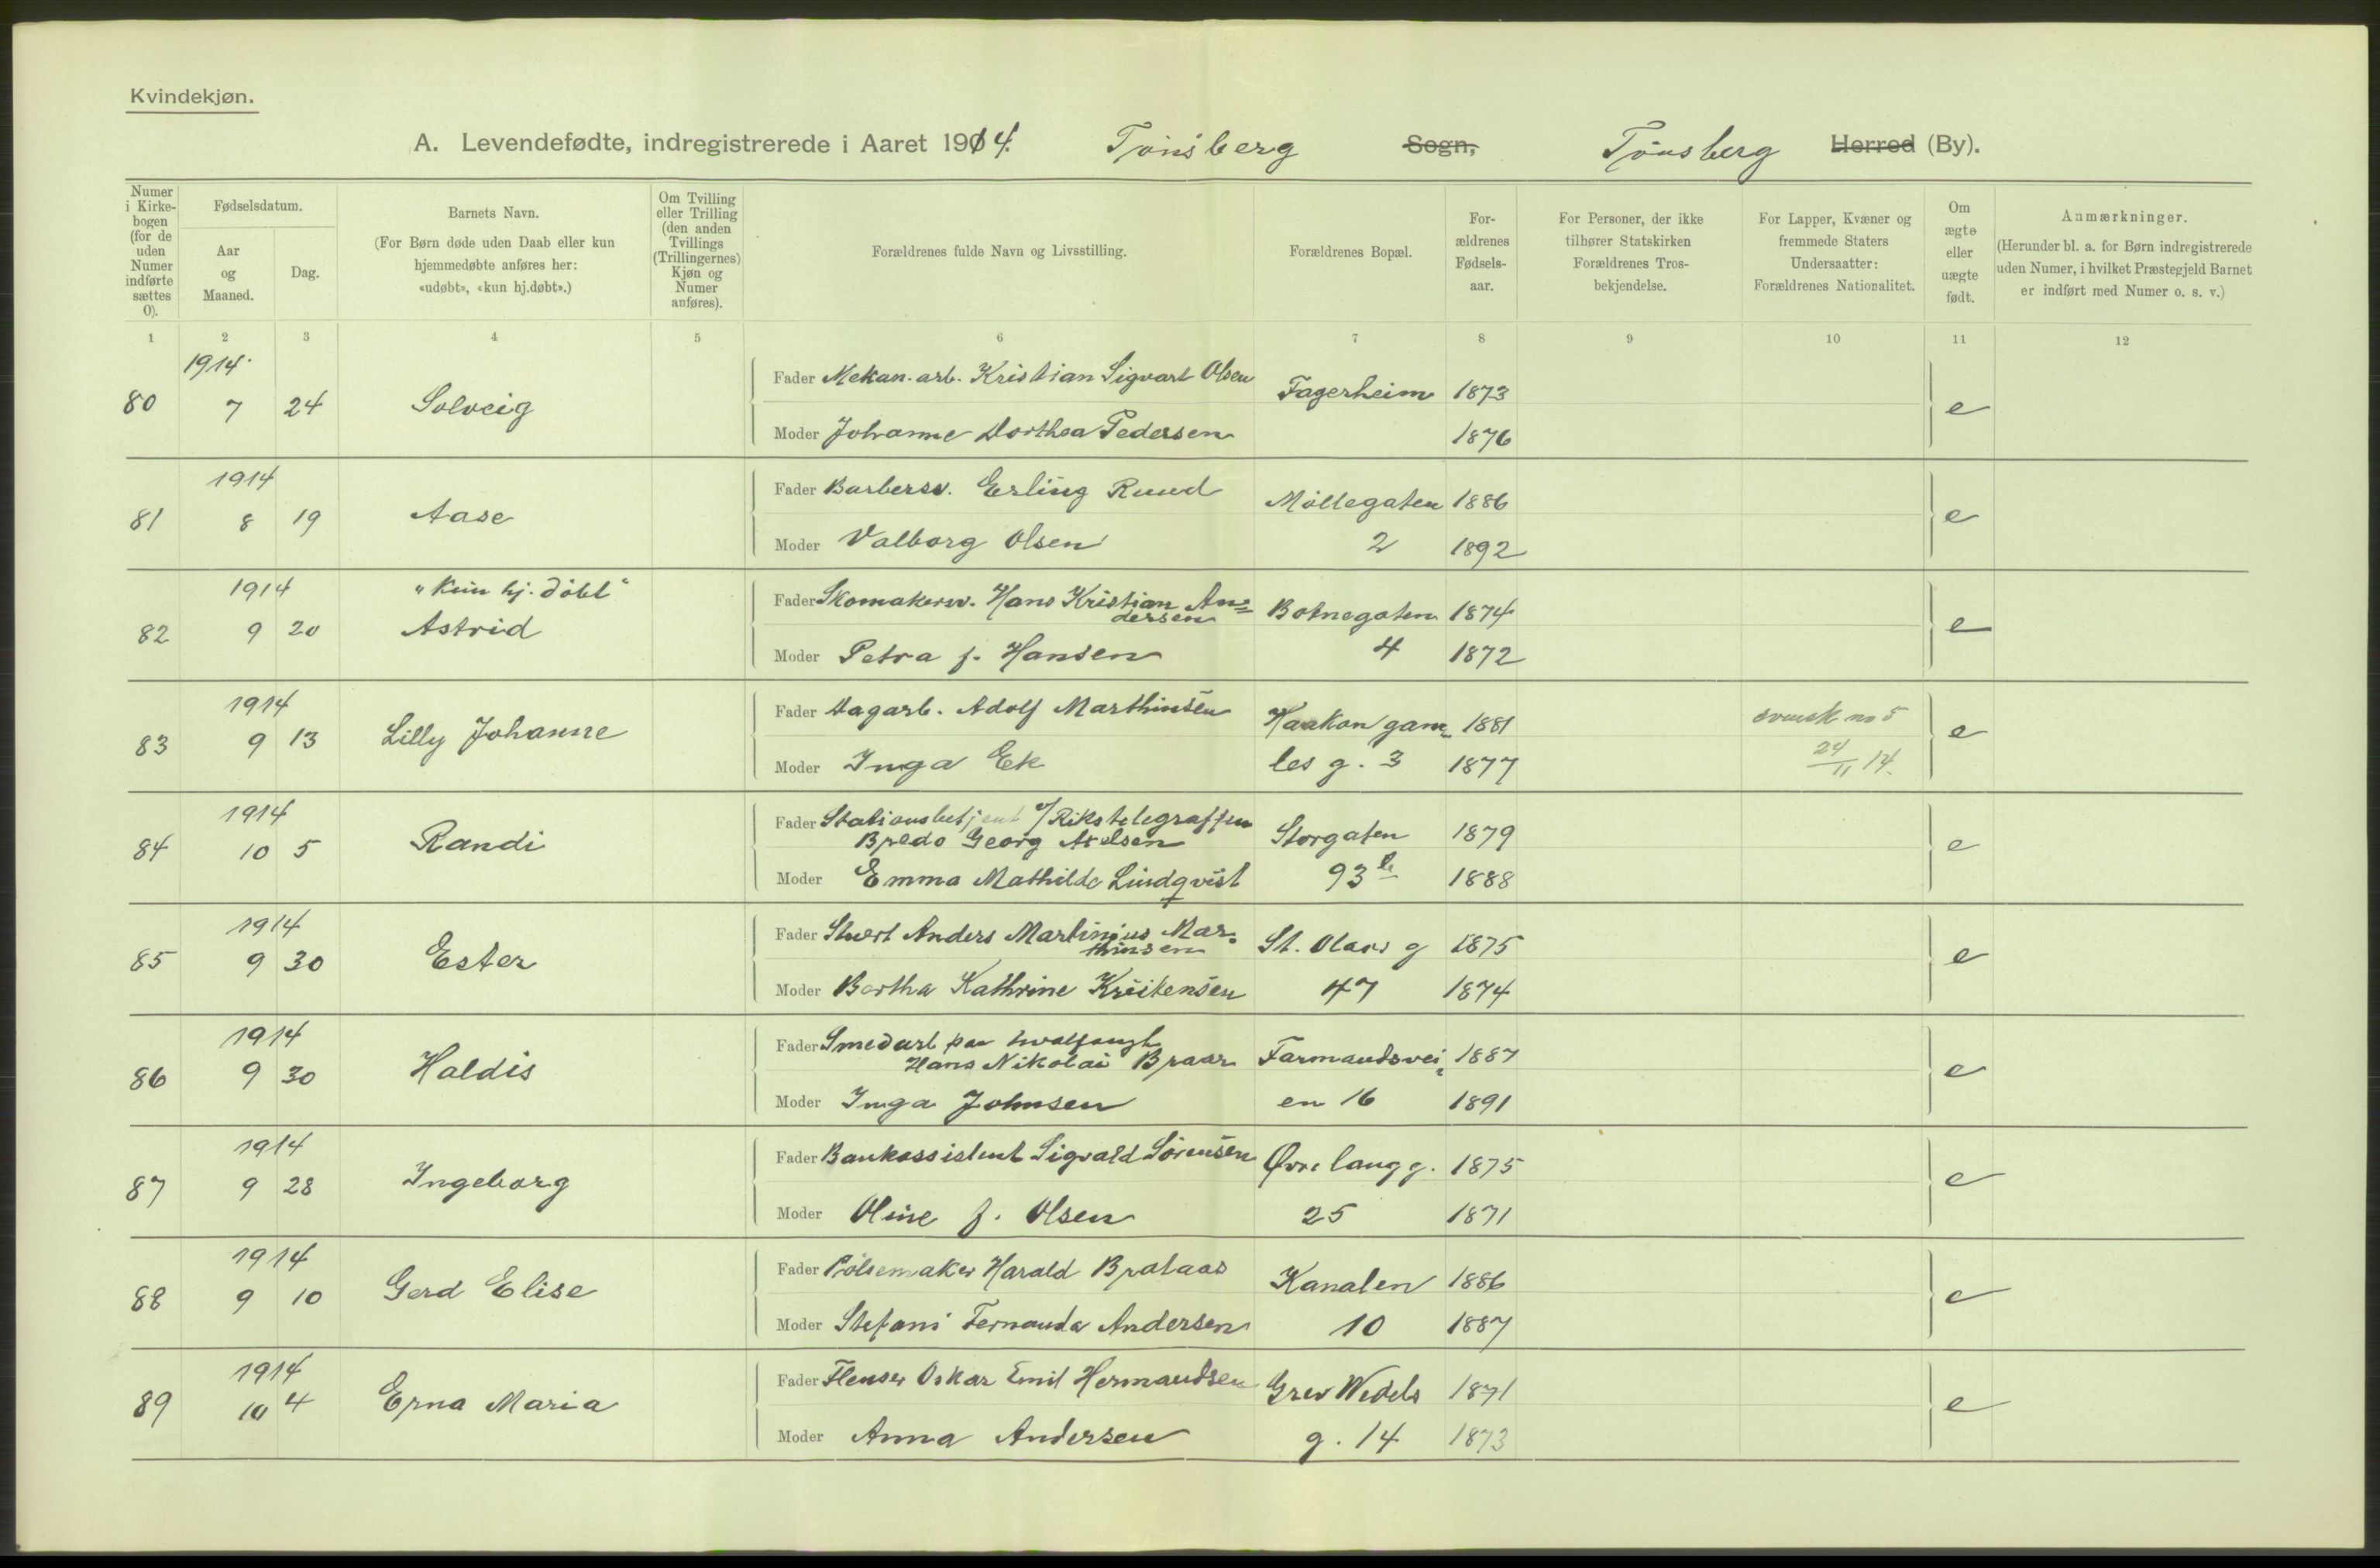 Kvindekjøn.
A. Levendefødte, indregistrerede i Aaret 1914. Tønsberg Sogn, Tønsberg Herred (By).
Numer i Kirkebogen (for de uden Numer indførte sættes 0).
Fødselsdatum.
Aar og Maaned.
Dag.
Barnets Navn.
(For Børn døde uden Daab eller kun hjemmedøbte anføres her: «udøbt», «kun hj.døbt».)
Om Tvilling eller Trilling (den anden Tvillings (Trillingernes) Kjøn og Numer anføres).
Forældrenes fulde Navn og Livsstilling.
Forældrenes Bopæl.
Forældrenes Fødselsaar.
For Personer, der ikke tilhører Statskirken Forældrenes Trosbekjendelse.
For Lapper, Kvæner og fremmede Staters Undersaatter: Forældrenes Nationalitet.
Om ægte eller uægte født.
Anmærkninger.
(Herunder bl. a. for Børn indregistrerede uden Numer, i hvilket Præstegjeld Barnet er indført med Numer o. s. v.)
1 2 3 4 5 6 7 8 9 10 11 12
1914.
Fader Mekan. arb. Kristian Sigvart Olsen Fagerheim 1873
80 7 24 Solveig e
Moder Johanne Dorthea Pedersen 1876
1914
Fader Barbersv. Erling Ruud Møllegaten 1886
81 8 19 Aase e
Moder Valborg Olsen 2 1892
1914 "Kun hj. døbt"
Fader Skomakersv. Hans Kristian Andersen Botnegaten 1874
82 9 20 Astrid e
Moder Petra f. Hansen 4 1872
1914
Fader Dagarb. Adolf Marthinsen Haakon gam- 1881 svensk no 5
83 9 13 Lilly Johanne e
Moder Inga Ek les g. 3 1877 24/11 14.
1914
Fader Stationsbetjent v/Rikstelegraffen
Bredo Georg Axelsen Storgaten 1879
84 10 5 Randi e
Moder Emma Mathilde Lindqvist 93 b 1888
1914
Fader Stuert Anders Martinius Marthinsen St. Olavs g 1875
85 9 30 Ester e
Moder Bertha Kathrine Kristensen 47 1874
1914
Fader Smedarb paa hvalfangst
Hans Nikolai Braar Farmandsvei- 1887
86 9 30 Haldis e
Moder Inga Johnsen en 16 1891
1914
Fader Bankassistent Sigvald Sørensen Øvre lang g. 1875
87 9 28 Ingeborg e
Moder Oline f. Olsen 25 1871
1914
Fader Pølsemaker Harald Brataas Kanalen 1886
88 9 10 Gerd Elise e
Moder Stefani Fernanda Andersen 10 1887
1914
Fader Flenser Oskar Emil Hermandsen Grev Wedels 1871
89 10 4 Erna Maria e
Moder Anna Andersen g. 14 1873